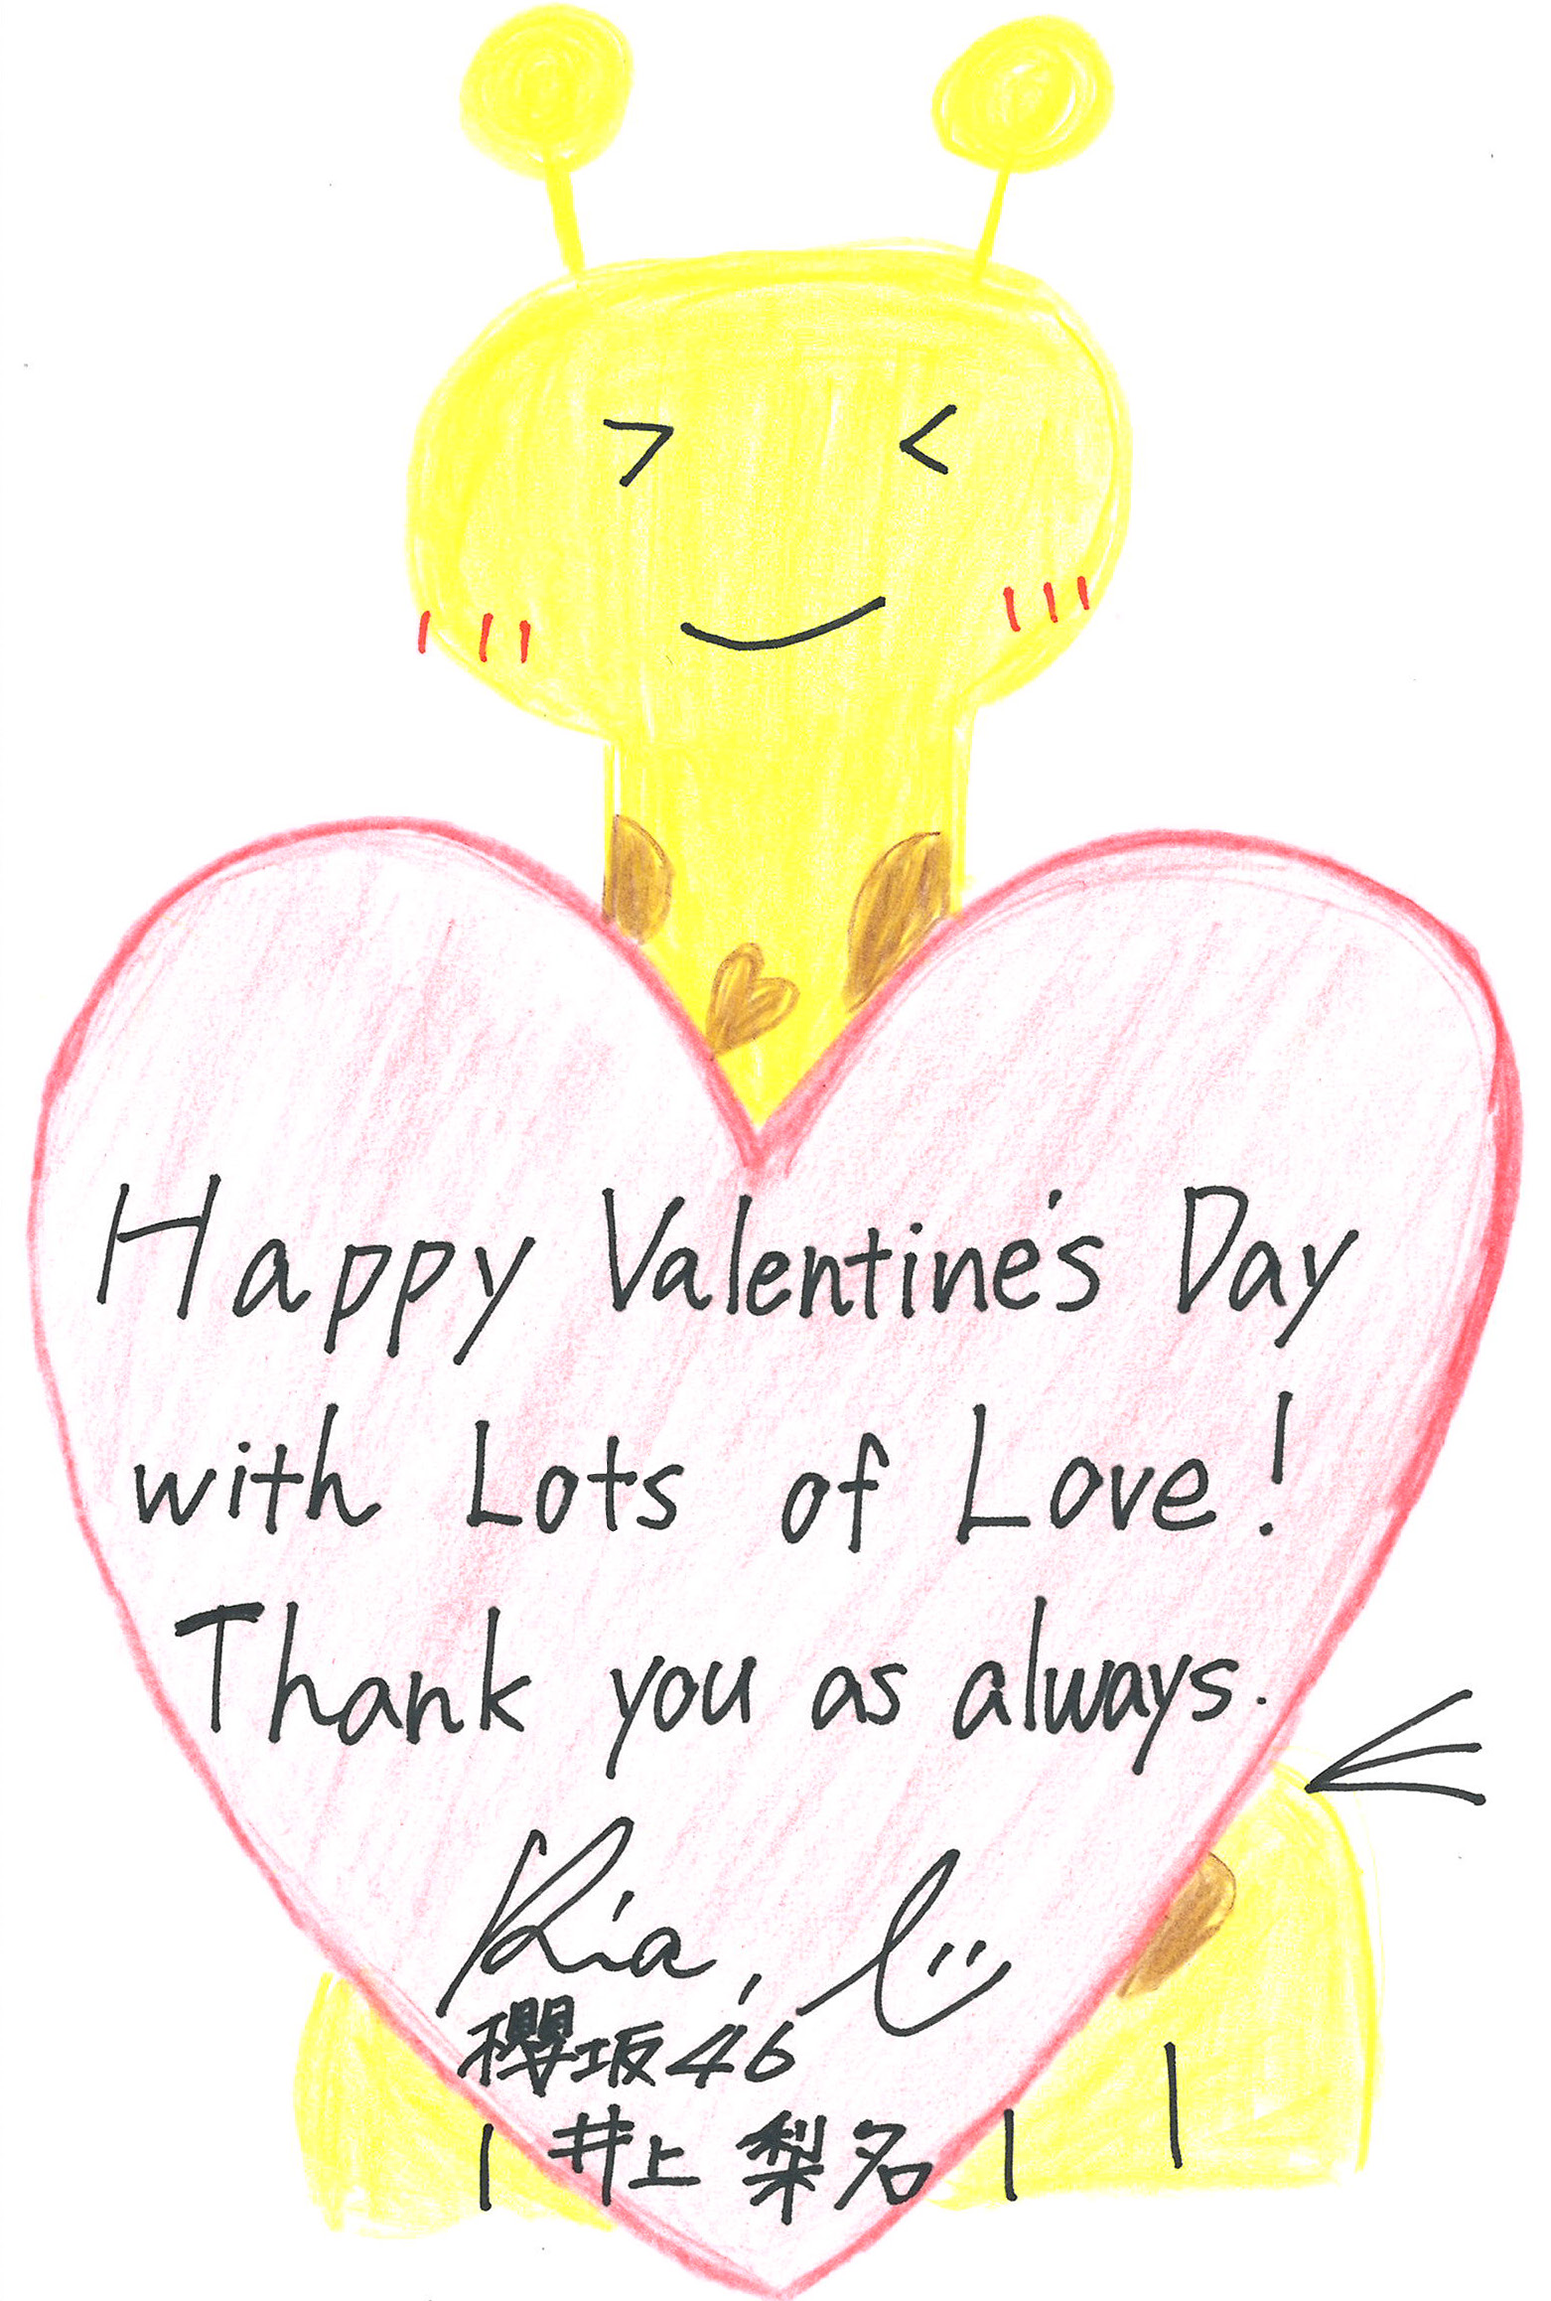 Happy Valentine's Day
with Lots of Love!
Thank you as always.
櫻坂46
井上 梨名